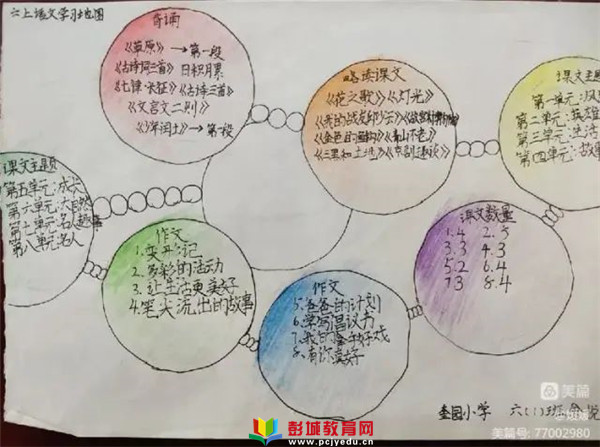 六上语文学习地图
背诵
《草原》→第一段
《古诗词三首》 日积月累
《七律·长征》《古诗三首》
《文言文二则》
《少年闰土》→第一段
略读课文
《花之歌》《灯光》
《我的战友邱少云》《故宫博物院》
《金色的鱼钩》《青山不老》
《三黑和土地》《京剧趣谈》
课文主题
第一单元:
第二单元:英雄
第三单元:生活
第四单元:故事
课文主题
第五单元:成长
第六单元:大自然
第七单元:名人趣事
第八单元:名人
作文
1.变形记
2.多彩的活动
3.让生活更美好
4.笔尖流出的故事
作文
5.爸爸的计划
6.学写倡议书
7.我的拿手好戏
8.有你真好
课文数量
1.4 2.5
3.3 4.3
5.2 6.4
7.3 8.4
奎园小学 六(1)班
美篇
美篇号: 77002980
彭城教育网
www.pcjyedu.cn